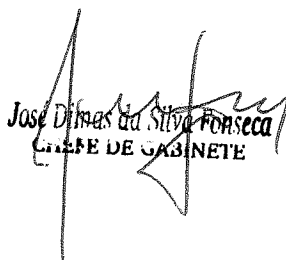 José Dimas da Silva Fonseca
CHEFE DE GABINETE